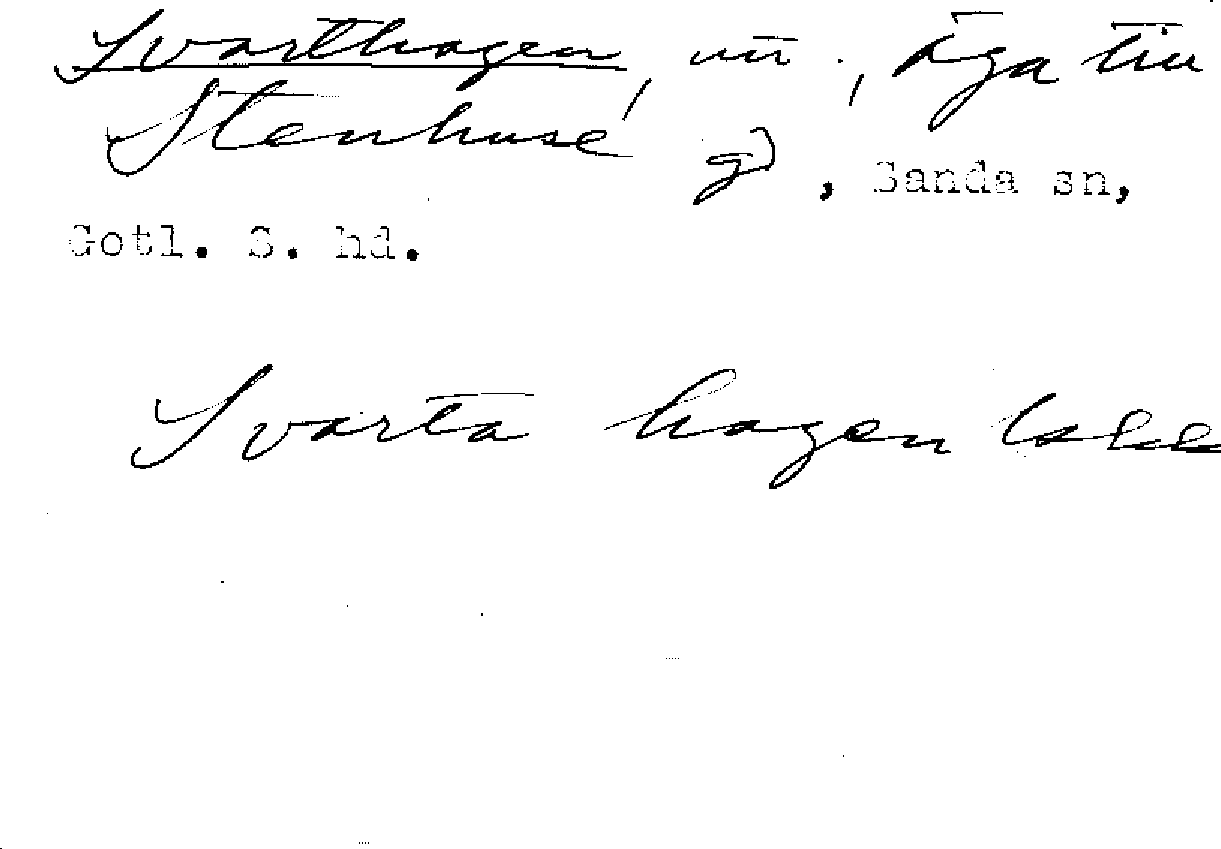 Svarthagen, utr., äga till
Stenhuse
gd, Sanda sn,
Gotl. S. hd.
Svarta hagen